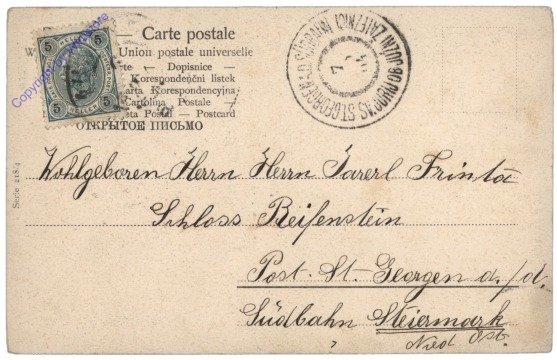 Carte postale
Union postale universelle
Dopisnice -
Korespondenční listek
Karta Korespondencyjna
Cartolina Postale -
Postcard
ОТКРЫТОЕ ПИСЬМО
5 5
HELLER
5 5
Serie 218/4
Wohlgeboren Herrn Herrn Jarerl Frinta
Schloss Reifenstein
Post. St. Georgen a./d.
Südbahn Steiermark
Nied Öst.